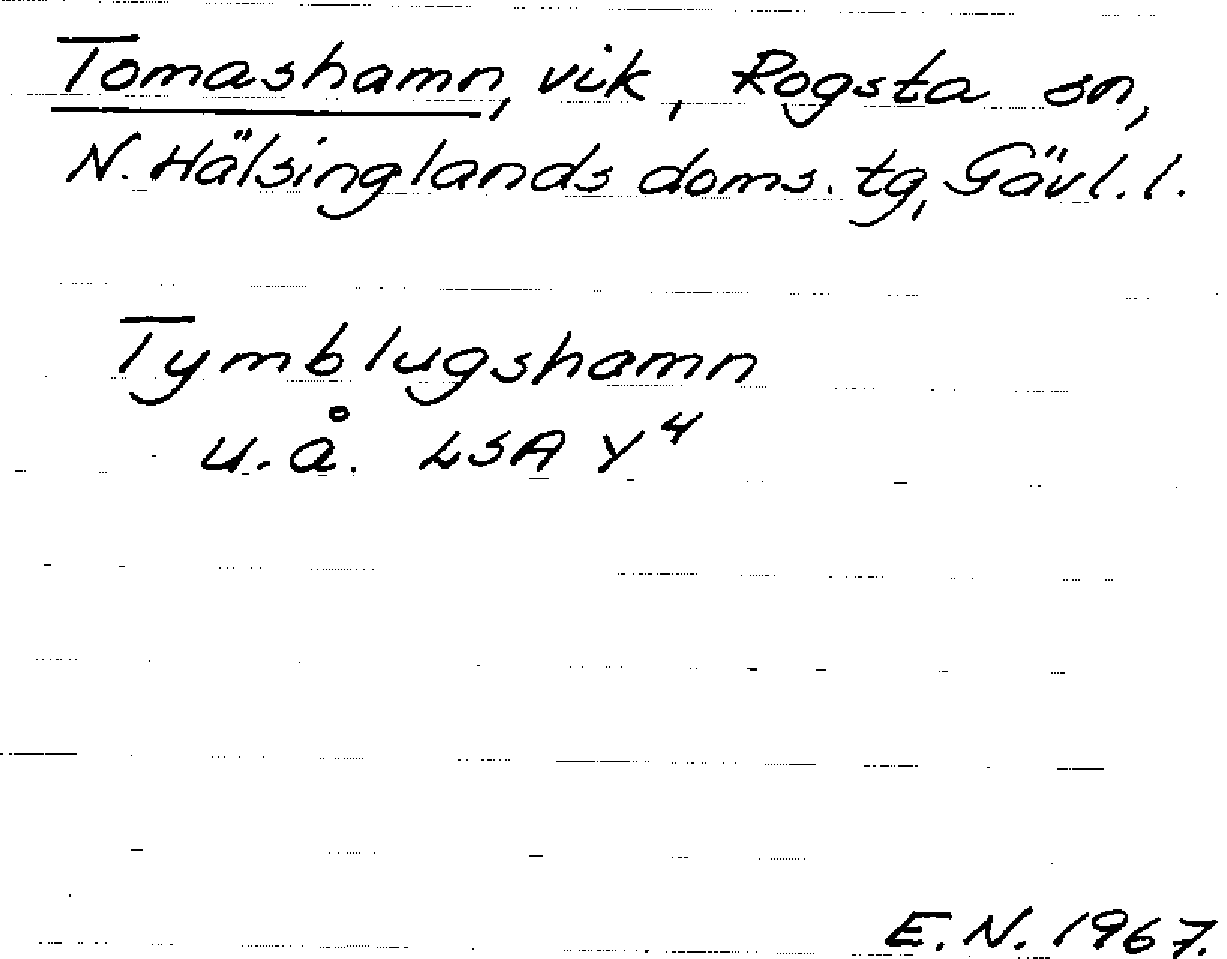 Tomashamn, vik, Rogsta sn,
N. Hälsinglands doms. tg, Gävl. l.
Tymblugshamn
u.å. LSA Y⁴
E.N. 1967.